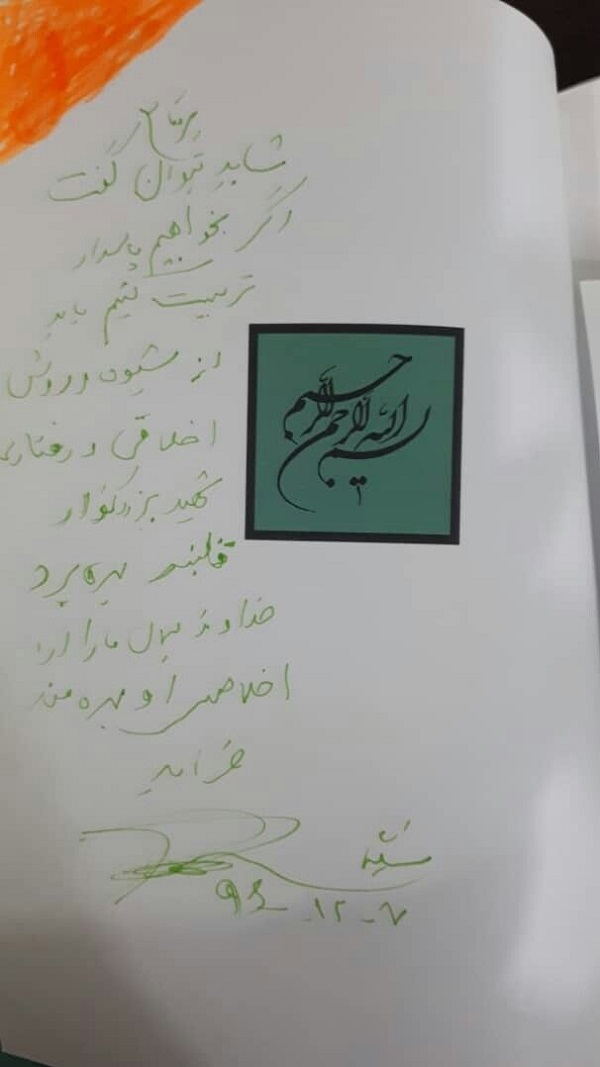 شاید بتوان گفت
اگر بخواهیم پاسدار
تربیت کنیم باید
از شیوه و روش
اخلاقی و رفتاری
شهید بزرگوار
بهره برد
خداوند همه ما را از
اخلاص او بهره مند
فرماید
۹۴-۱۲-۷
بسم الله الرحمن الرحیم